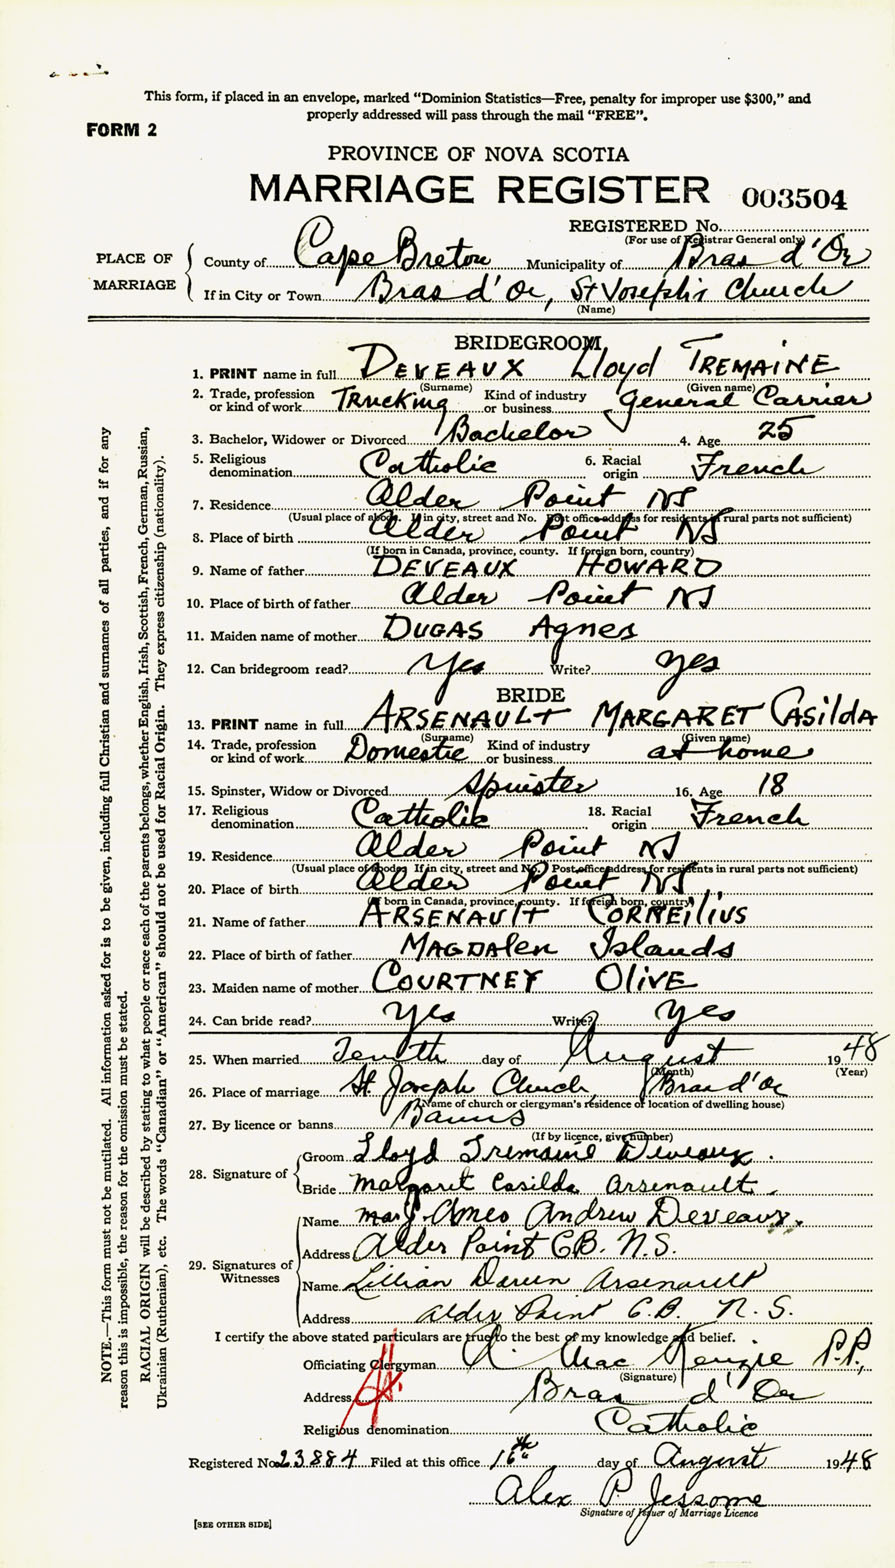 This form, if placed in an envelope, marked “Dominion Statistics—Free, penalty for improper use $300,” and
properly addressed will pass through the mail “FREE”.
FORM 2
PROVINCE OF NOVA SCOTIA
MARRIAGE REGISTER 003504
REGISTERED No.
(For use of Registrar General only)
PLACE OF MARRIAGE
County of Cape Breton Municipality of Bras d'Or
If in City or Town Bras d'Or, St Joseph's Church
(Name)
BRIDEGROOM
1. PRINT name in full DEVEAUX Lloyd TREMAINE
(Surname) (Given name)
2. Trade, profession or kind of work Trucking Kind of industry or business General Carrier
3. Bachelor, Widower or Divorced Bachelor 4. Age 25
5. Religious denomination Catholic 6. Racial origin French
7. Residence Alder Point NS
(Usual place of abode. If in city, street and No. Post office address for residents in rural parts not sufficient)
8. Place of birth Alder Point NS
(If born in Canada, province, county. If foreign born, country)
9. Name of father DEVEAUX HOWARD
10. Place of birth of father Alder Point NS
11. Maiden name of mother DUGAS Agnes
12. Can bridegroom read? Yes Write? Yes
BRIDE
13. PRINT name in full ARSENAULT MARGARET CASildA
(Surname) (Given name)
14. Trade, profession or kind of work Domestic Kind of industry or business at home
15. Spinster, Widow or Divorced Spinster 16. Age 18
17. Religious denomination Catholic 18. Racial origin French
19. Residence Alder Point NS
(Usual place of abode. If in city, street and No. Post office address for residents in rural parts not sufficient)
20. Place of birth Alder Point NS
(If born in Canada, province, county. If foreign born, country)
21. Name of father ARSENAULT CORNEilIUS
22. Place of birth of father MAGDAlen Islands
23. Maiden name of mother COURTNEY OlIVE
24. Can bride read? Yes Write? Yes
25. When married Tenth day of August 1948
(Month) (Year)
26. Place of marriage St Joseph Church, Bras d'Or
(Name of church or clergyman's residence of location of dwelling house)
27. By licence or banns Banns
(If by licence, give number)
28. Signature of
Groom Lloyd Tremaine Deveaux.
Bride Margaret Casilda Arsenault.
29. Signatures of Witnesses
Name Andrew Deveaux.
Address Alder Point C.B. N.S.
Name Lillian Arsenault
Address Alder Point C.B. N.S.
I certify the above stated particulars are true to the best of my knowledge and belief.
Officiating Clergyman Mac Kenzie P.P.,
(Signature)
Address Bras d'Or
Religious denomination Catholic
Registered No. 23884 Filed at this office 16th day of August 1948
Alex P. Jessome
Signature of Issuer of Marriage Licence
[SEE OTHER SIDE]
NOTE.—This form must not be mutilated. All information asked for is to be given, including full Christian and surnames of all parties, and if for any
reason this is impossible, the reason for the omission must be stated.
RACIAL ORIGIN will be described by stating to what people or race each of the parents belongs, whether English, Irish, Scottish, French, German, Russian,
Ukrainian (Ruthenian), etc. The words “Canadian” or “American” should not be used for Racial Origin. They express citizenship (nationality).